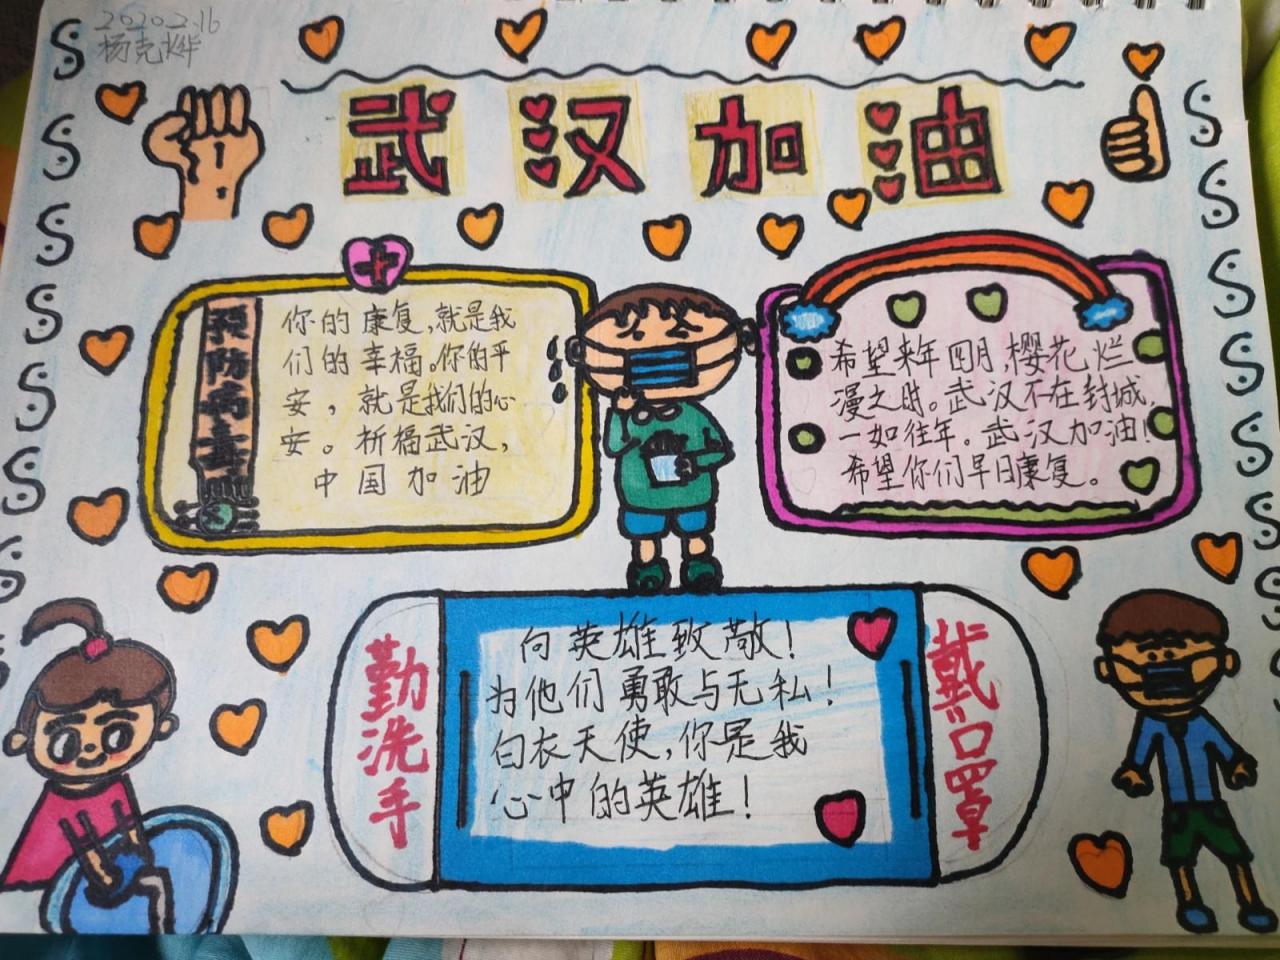 2020.2.16
杨克烨
武汉加油
预防病毒
你的康复,就是我
们的幸福。你的平
安,就是我们的心
安。祈福武汉,
中国加油
希望来年四月,樱花烂
漫之时。武汉不在封城,
一如往年。武汉加油!
希望你们早日康复。
勤洗手
向英雄致敬!
为他们勇敢与无私!
白衣天使,你是我
心中的英雄!
戴口罩